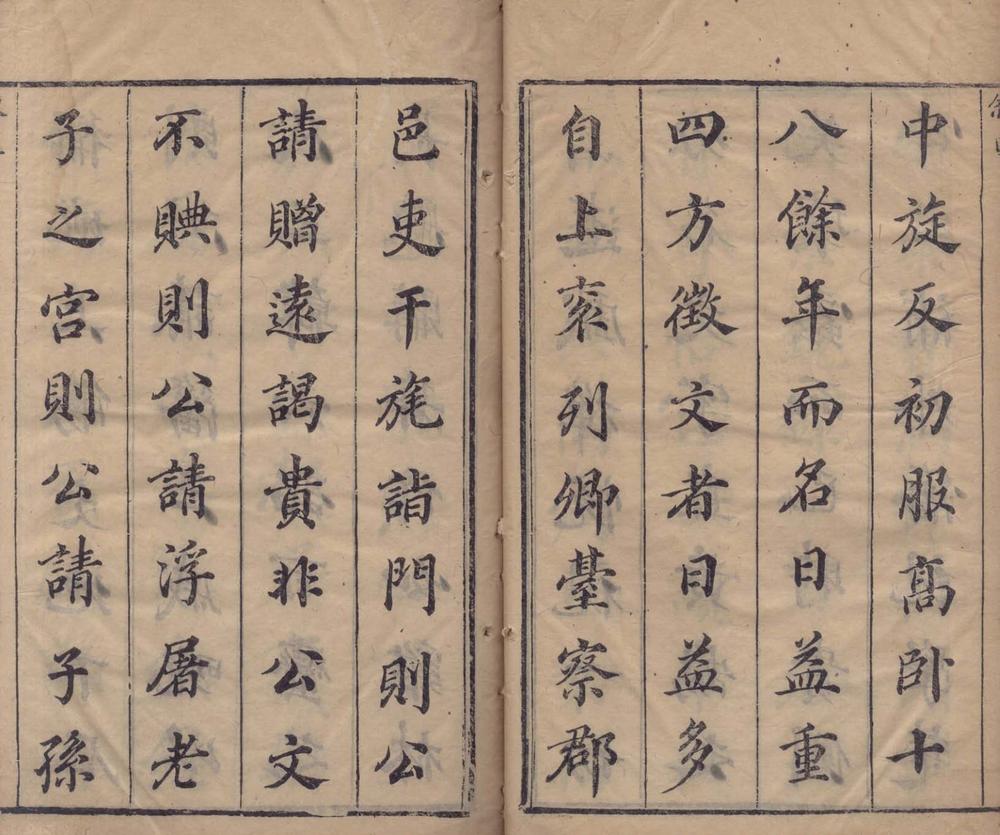 中旋反初服髙卧十
八餘年而名日益重
四方徵文者日益多
自上衮列卿臺察郡
邑吏干旄詣門則公
請贈遠謁貴非公文
不賟則公請浮屠老
子之宮則公請子孫